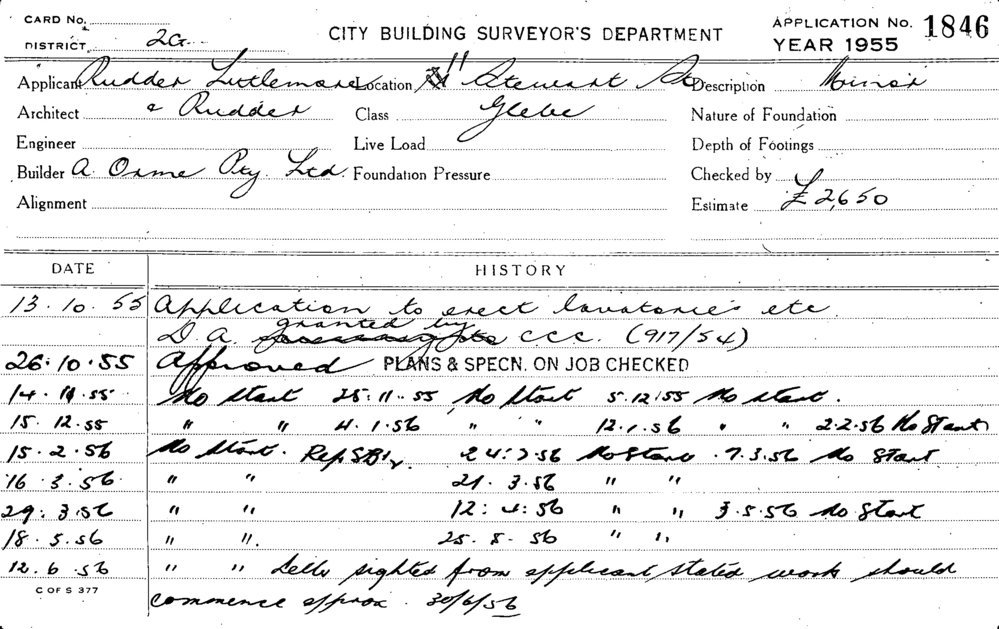 CARD No.
DISTRICT 2G
CITY BUILDING SURVEYOR'S DEPARTMENT
APPLICATION No. 1846
YEAR 1955
Applicant Rudder Littlemore Location 11 Stewart St Description Minor
Architect & Rudder Class Glebe Nature of Foundation
Engineer Live Load Depth of Footings
Builder A. Orme Pty. Ltd. Foundation Pressure Checked by
Alignment Estimate £2,650
DATE HISTORY
13.10.55 Application to erect lavatories etc.
D.A. granted by CCC. (917/54)
26.10.55 Approved PLANS & SPECN. ON JOB CHECKED
14.11.55 No start 25.11.55 No start 5.12.55 No start.
15.12.55 " " 4.1.56 " " 12.1.56 " " 2.2.56 No Start
15.2.56 No Start. 24.2.56 No Start 7.3.56 No Start
16.3.56 " " 21.3.56 " "
29.3.56 " " 12.4.56 " " 3.5.56 No Start
18.5.56 " " 25.5.56 " "
12.6.56 " " Letter sighted from applicant stated work should
commence approx. 30/6/56
C OF S 377